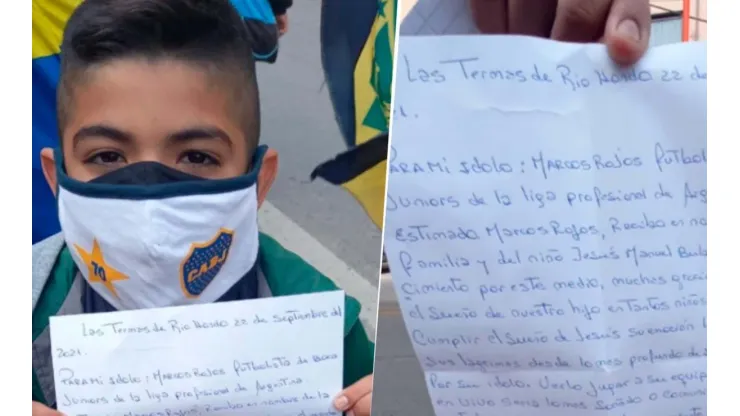 70
CABJ
Las Termas de Rio Hondo 22 de Septiembre del
2021.
PARA mi idolo: MARCOS ROJOS futbolista de Boca
Juniors de la liga profesional de Argentina
Marcos Rojos, Recibo en nombre de la
Las Termas de Rio Hondo 22 de
21.
PARA mi idolo: MARCOS ROJOS futbolis
Juniors de la liga profesional de Arge
Estimado Marcos Rojos, Recibo en no
familia y del niño Jesus Manuel
cimiento por este medio, muchas graci
el sueño de nuestro hijo en tantos niños
Cumplir el sueño de Jesus su emoción
sus lagrimas desde lo mas profundo de s
Por su idolo. Verlo jugar a su equip
en vivo seria lo mas soñado o